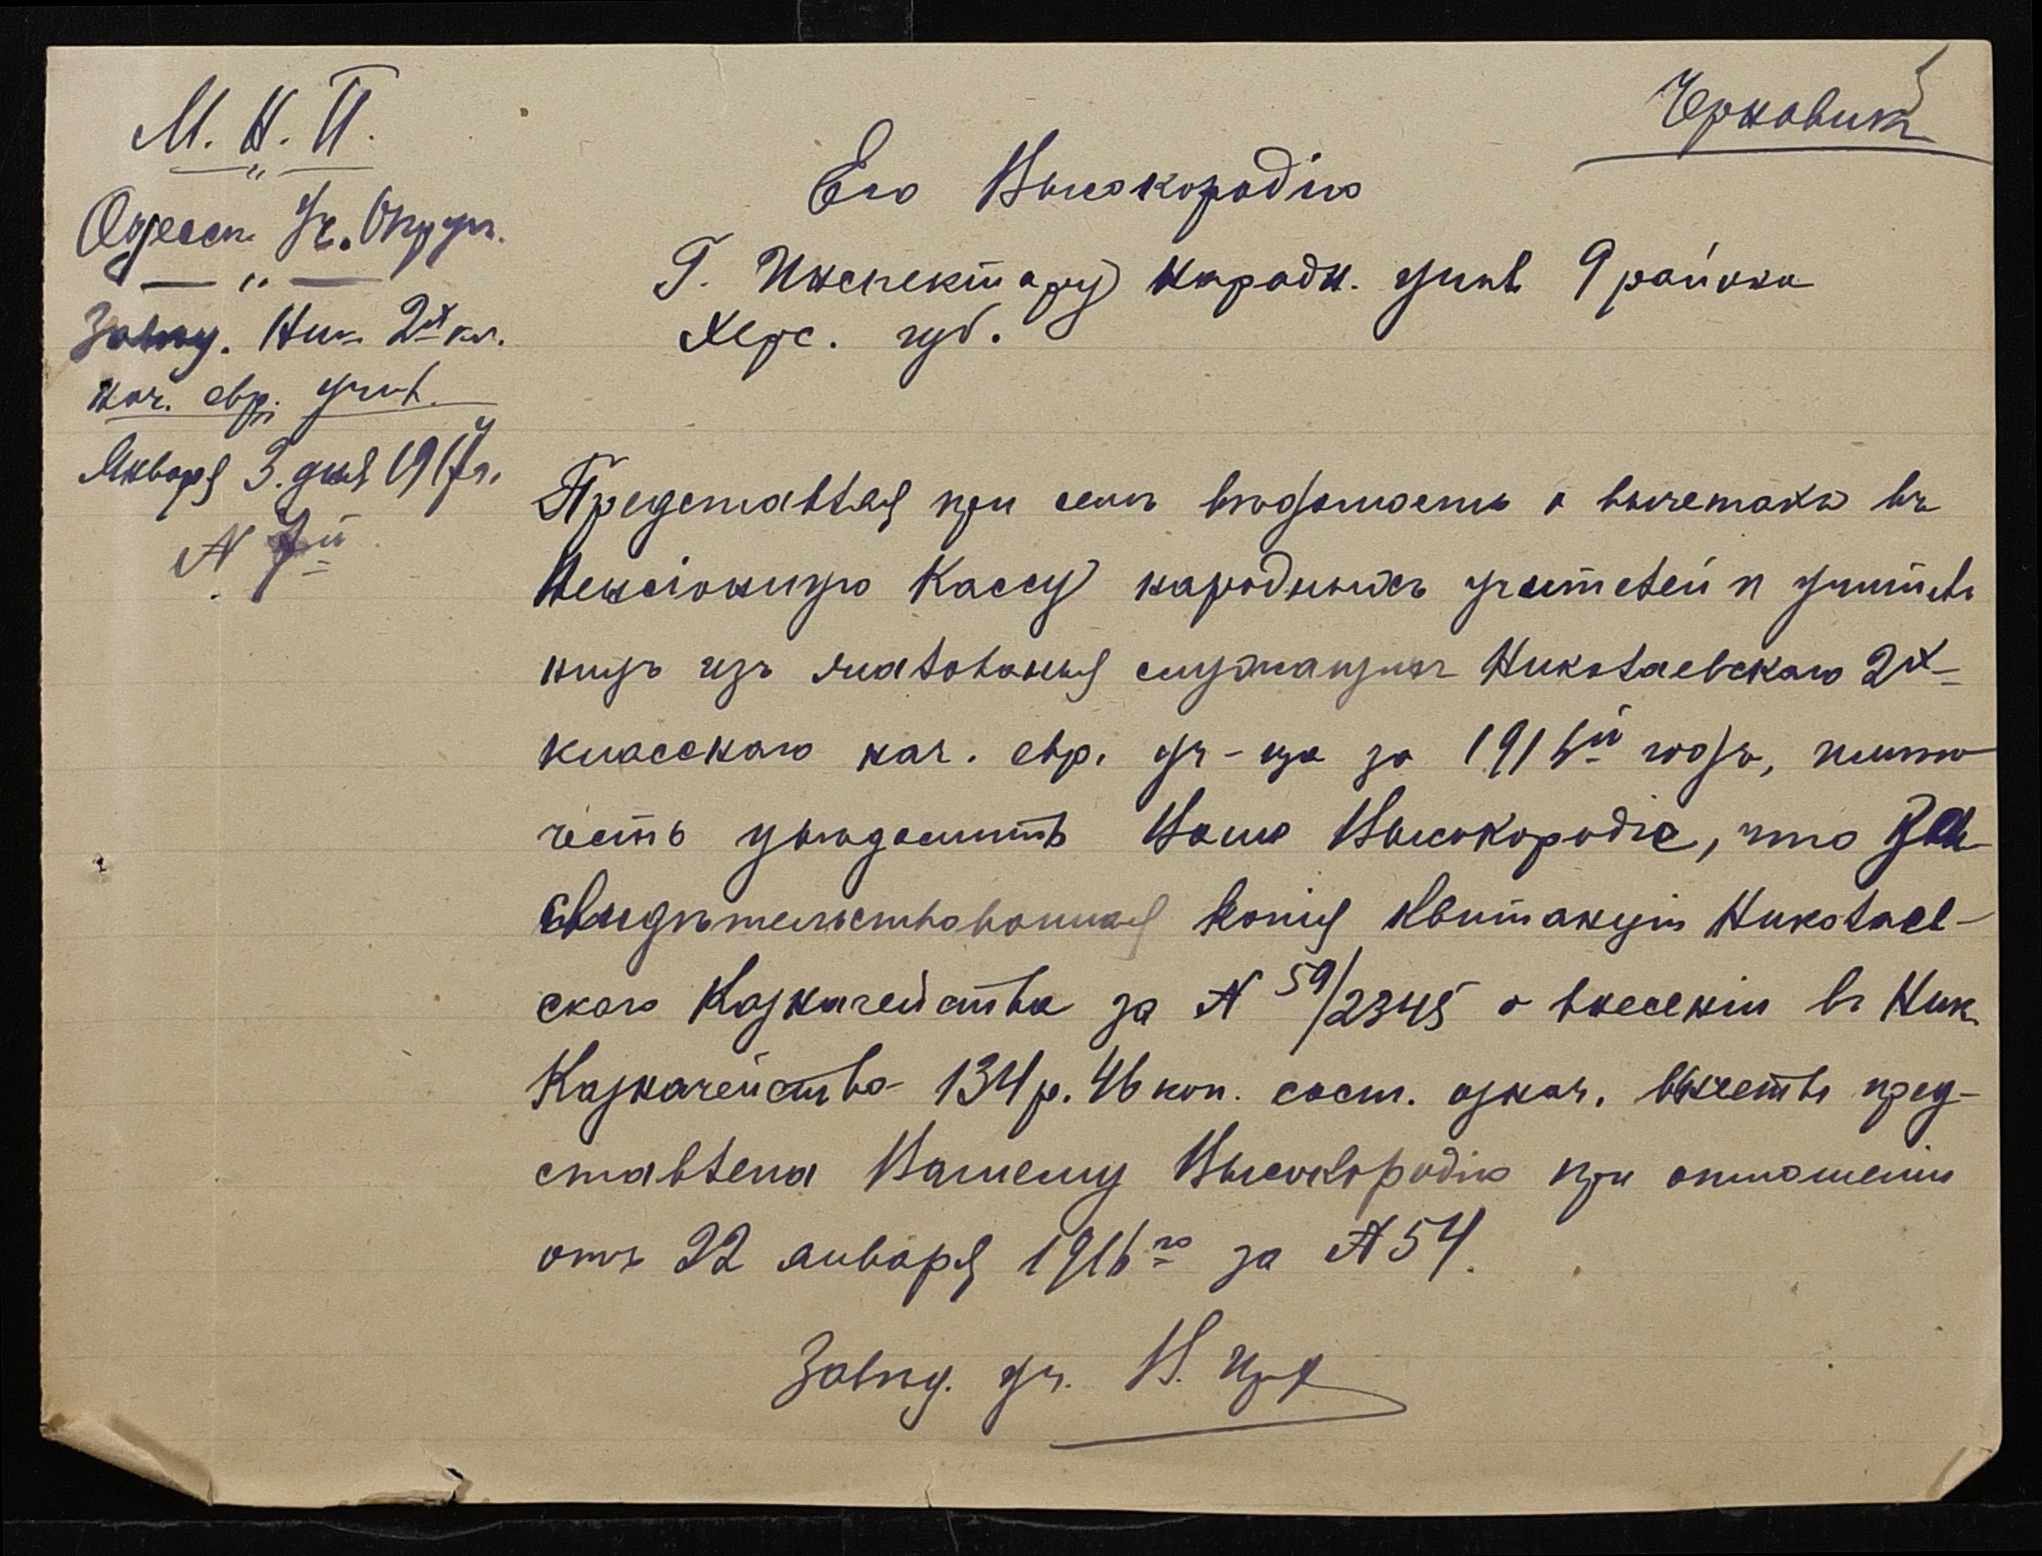 Черновикъ
М. Н. П.
Одесск. Уч. Округ.
Завѣд. Ник. 2хкл.
нач. евр. учил.
Января 3. дня 1917 г.
N 7й
Его Высокородію
Г. Инспектору народн. учил. 9 района
Херс. губ.
Представляя при семъ вѣдомость о вычетахъ въ
Пенсіонную Кассу народныхъ учителей и учитель
ницъ изъ жалованья служащихъ Николаевскаго 2х
класснаго нач. евр. уч-ща за 1916й годъ, имѣю
честь увѣдомить Ваше Высокородіе, что за
свидѣтельствованная копія квитанціи Николаев-
скаго Казначейства за N 59/2345 о внесеніи въ Ник.
Казначейство 134 р. 46 коп. сост. означ. вычеты пред-
ставлена Вашему Высокородію при отношеніи
отъ 22 января 1916го за N 54.
Завѣд. уч. И.